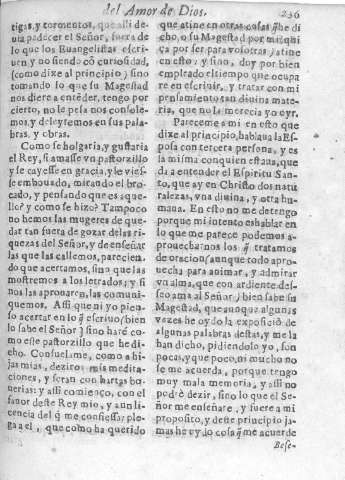 del Amor de Dios.
236
tigas, y tormentos, que alli de-
uia padecer el Señor, fuera de
lo que los Euangelistas escri-
uen y no siendo cō curiosidad,
(como dixe al principio) sino
tomando lo que su Magestad
nos diere a entēder, tengo por
cierto, no le pesa nos console-
mos, y deleytemos en sus pala-
bras, y obras.
Como se holgaria, y gustaria
el Rey, si amasse vn pastorzillo
y se cayesse en gracia, y le vies-
se embouado, mirando el bro-
cado, y pensando que es aque-
llo? y como se hizo? Tampoco
no hemos las mugeres de que-
dar tan fuera de gozar delas ri-
quezas del Señor, y de enseñar
las que las callemos, parecien-
do que acertamos, sino que las
mostremos a los letrados; y si
nos las aprouaren, las comuni-
quemos. Assi que ni yo pien-
so acertar en lo q̄ escriuo; bien
lo sabe el Señor) sino haré co-
mo este pastorzillo que he di-
cho. Consuelame, como a hi-
jas mias, deziros mis medita-
ciones, y seran con hartas bo-
uerias: y assi comiença, con el
fauor deste Rey mio, y aun li-
cencia del q̄ me confiessa: ple-
ga a el, que como ha querido
que atine en otras cosas q̄ he di
cho, o su Magestad por mi, quiça
por ser para vosotras) atine
en esto: y sino, doy por bien
empleado el tiẽpo que ocupa
re en escriuir, y tratar con mi
pensamiento tan diuina mate-
ria, que no la merecia yo oyr.
Pareceme a mi en esto que
dixe al principio, hablaua la Es-
posa con tercera persona, y es
la misma con quien estaua, que
da a entender el Espiritu San-
to, que ay en Christo dos natu
ralezas, vna diuina, y otra hu-
mana. En esto no me detengo
porque mi intento es hablar en
lo que me parece podemos a-
prouecharnos los q̄ tratamos
de oracion, aunque todo apro-
uecha para animar, y admirar
vn alma, que con ardiente des-
seo ama al Señor) bien sabe su
Magestad, que aunque algunas
vezes he oydo la exposiciō de
algunas palabras destas, y me la
han dicho, pidiendolo yo, son
pocas, y que poco, ni mucho no
se me acuerda, porque tengo
muy mala memoria, y assi no
podrè dezir, sino lo que el Se-
ñor me enseñare, y fuere a mi
proposito, y deste principio ja-
mas he oydo cosa q̄ me acuerde
Bese-